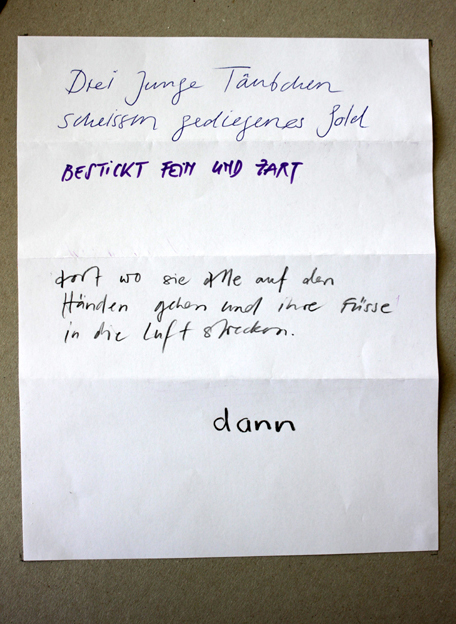 Drei junge Täubchen
scheissen gediegenes Gold
BESTICKT FEIN UND ZART
dort wo sie alle auf den
Händen gehen und ihre Füsse
in die Luft strecken.
dann